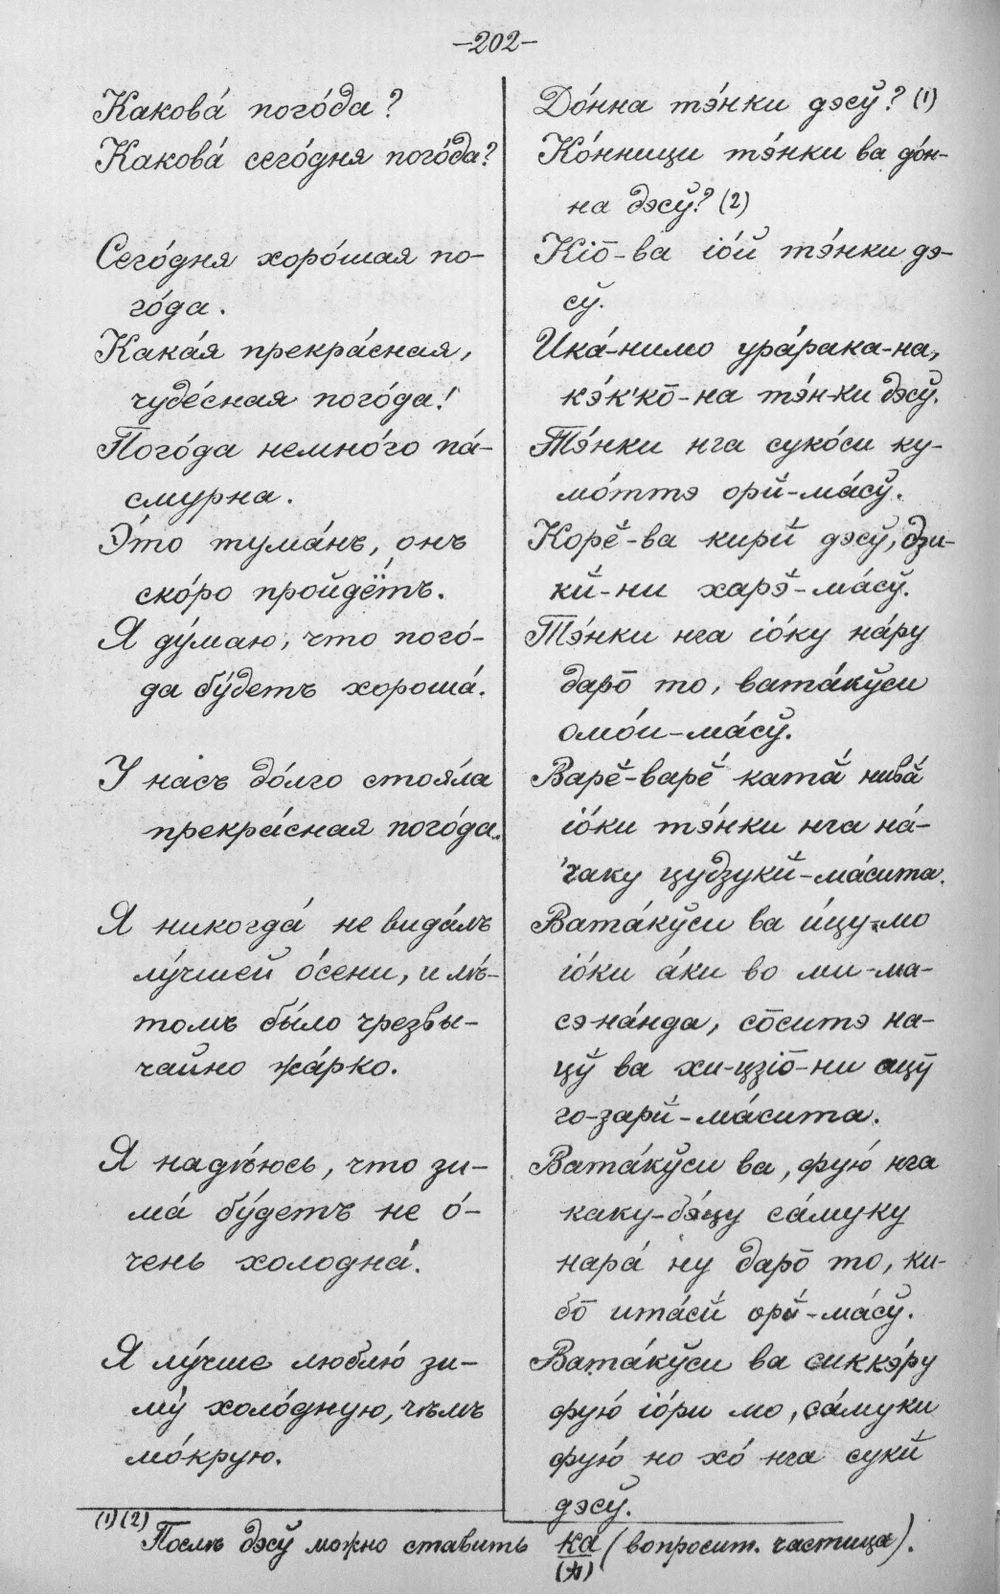 –202–
Какова́ пого́да?
Какова́ сего́дня пого́да?
Сего́дня хоро́шая по-
го́да.
Кака́я прекра́сная,
чуде́сная пого́да!
Пого́да немно́го па́-
смурна.
Э́то тума́нъ, онъ
ско́ро пройдётъ.
Я ду́маю, что пого́-
да бу́детъ хороша́.
У насъ до́лго стоя́ла
прекра́сная пого́да.
Я никогда́ не вида́лъ
лу́чшей о́сени, и лѣ-
томъ бы́ло чрезвы-
чайно жа́рко.
Я надѣ́юсь, что зи-
ма́ бу́детъ не о́-
чень холодна́.
Я лу́чше люблю́ зи-
му́ холо́дную, чѣмъ
мо́крую.
До́нна тэ́нки дэсў? (1)
Ко́нници тэ́нки ва до́н-
на дэсў? (2)
Кіо̄-ва іо́й тэ́нки дэ-
сў.
Ика́-нимо ура́рака-на,
кэ́к'ко̄-на тэ́н-ки дэсў.
Тэ́нки нга суко́си ку-
мо́ттэ орй-ма́сў.
Корӗ-ва кирй дэсў, дзи-
кй-ни харэ̆-ма́сў.
Тэ́нки нга іо́ку на́ру
даро̄ то, вата́кўси
омо́и-ма́сў.
Варӗ-варӗ катӑ нивӑ
іо́ки тэ́нки нга на́-
гаку цудзукй-ма́сита.
Вата́кўси ва и́цу-мо
іо́ки а́ки во ми-ма-
сэ-на́нда, со̄ситэ на-
цў ва хи-цзіо̄-ни ацў
го-зарй-ма́сита.
Вата́кўси ва, фую́ нга
каку-бэ́цу са́муку
нара́ ну даро̄ то, ки-
бо̄ ита́сй орй-ма́сў.
Вата́кўси ва сиккэ́ру
фую́ іо́ри мо, са́муки
фую́ но хо́ нга сукй
дэсў.
(1) (2) Послѣ дэсў можно ставить ка (вопросит. частица).
(カ)